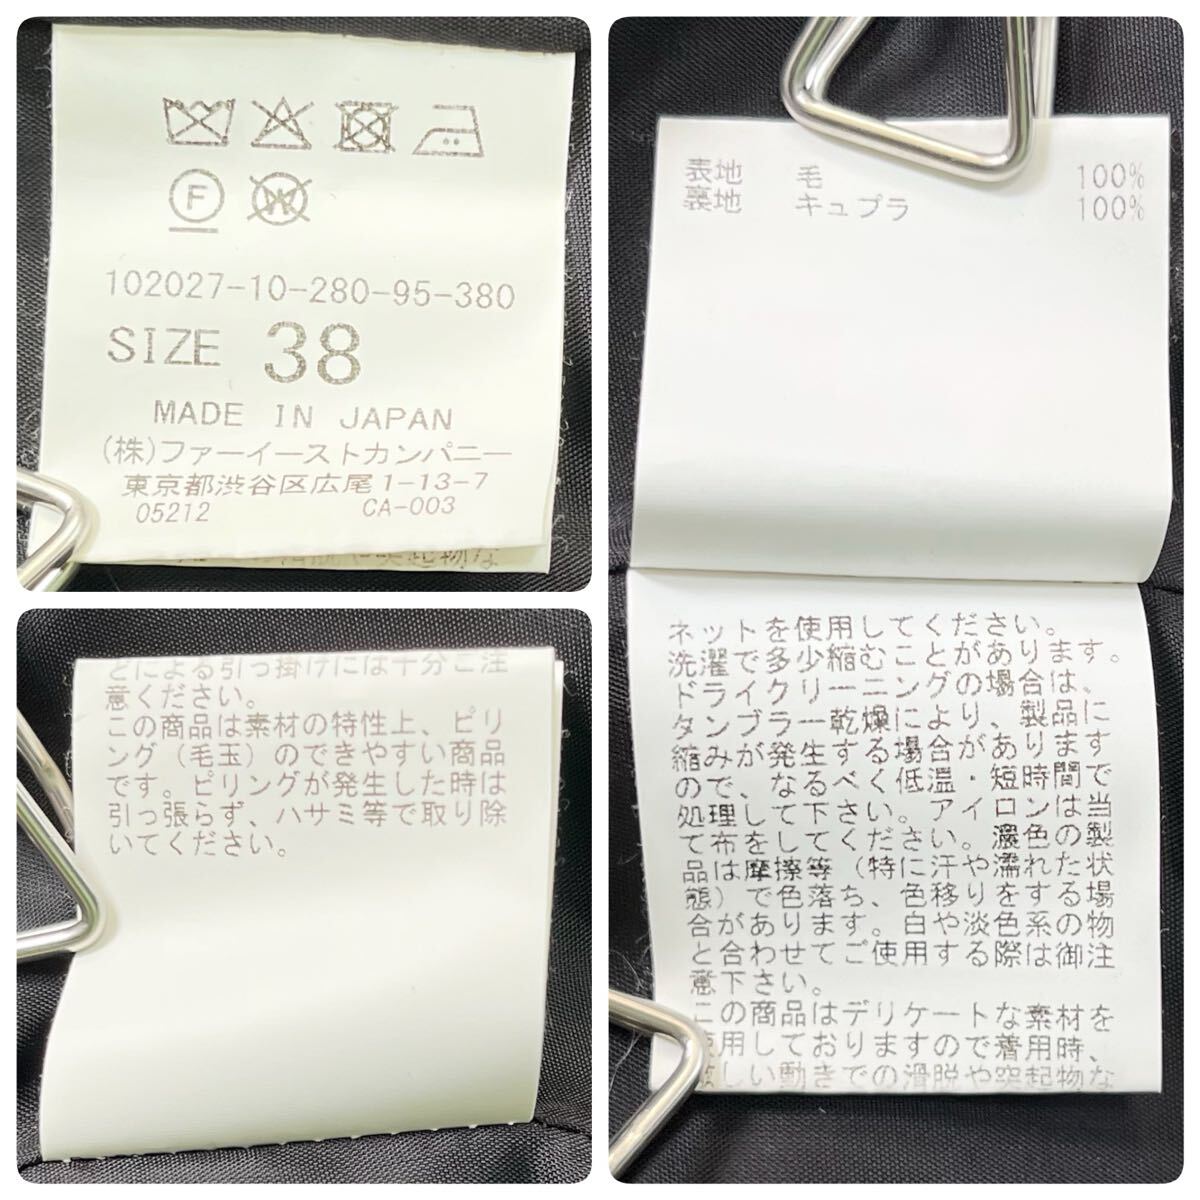 F
W
102027-10-280-95-380
SIZE 38
MADE IN JAPAN
(株)ファーイーストカンパニー
東京都渋谷区広尾1-13-7
05212 CA-003
表地 毛 100%
裏地 キュプラ 100%
ネットを使用してください。
洗濯で多少縮むことがあります。
ドライクリーニングの場合は、
タンブラー乾燥により、製品に
縮みが発生する場合があります
ので、なるべく低温・短時間で
処理して下さい。アイロンは当
て布をしてください。濃色の製
品は摩擦等（特に汗や濡れた状
態）で色落ち、色移りをする場
合があります。白や淡色系の物
と合わせてご使用する際は御注
意下さい。
この商品はデリケートな素材を
使用しておりますので着用時、
激しい動きでの滑脱や突起物な
どによる引っ掛けには十分ご注
意ください。
この商品は素材の特性上、ピリ
ング（毛玉）のできやすい商品
です。ピリングが発生した時は
引っ張らず、ハサミ等で取り除
いてください。